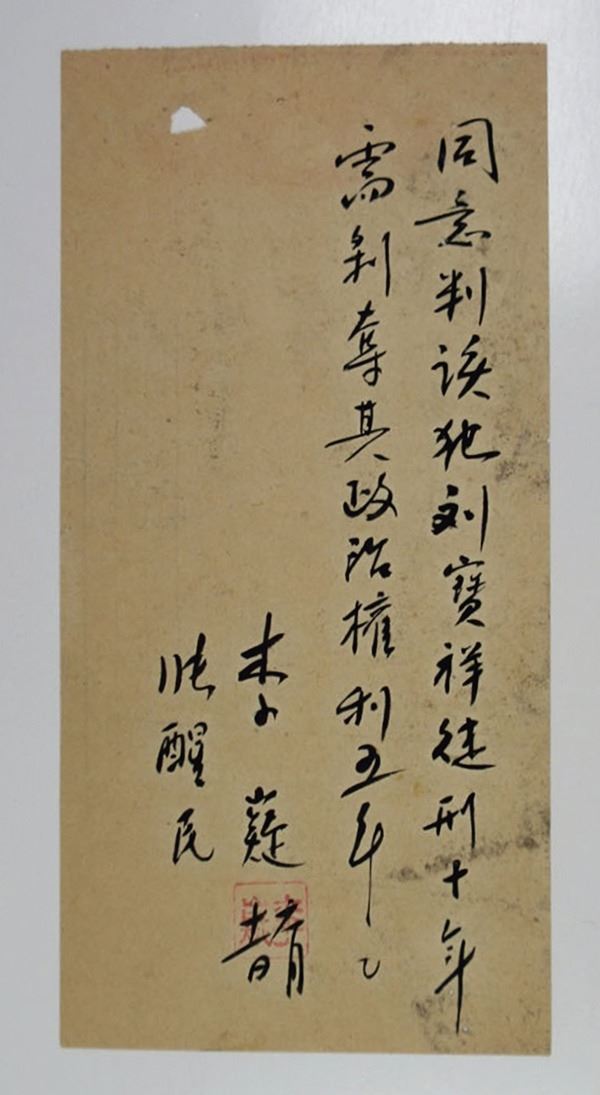 同意判该犯刘寶祥徒刑十年
需剥奪其政治權利五年
李嶷
张醒民